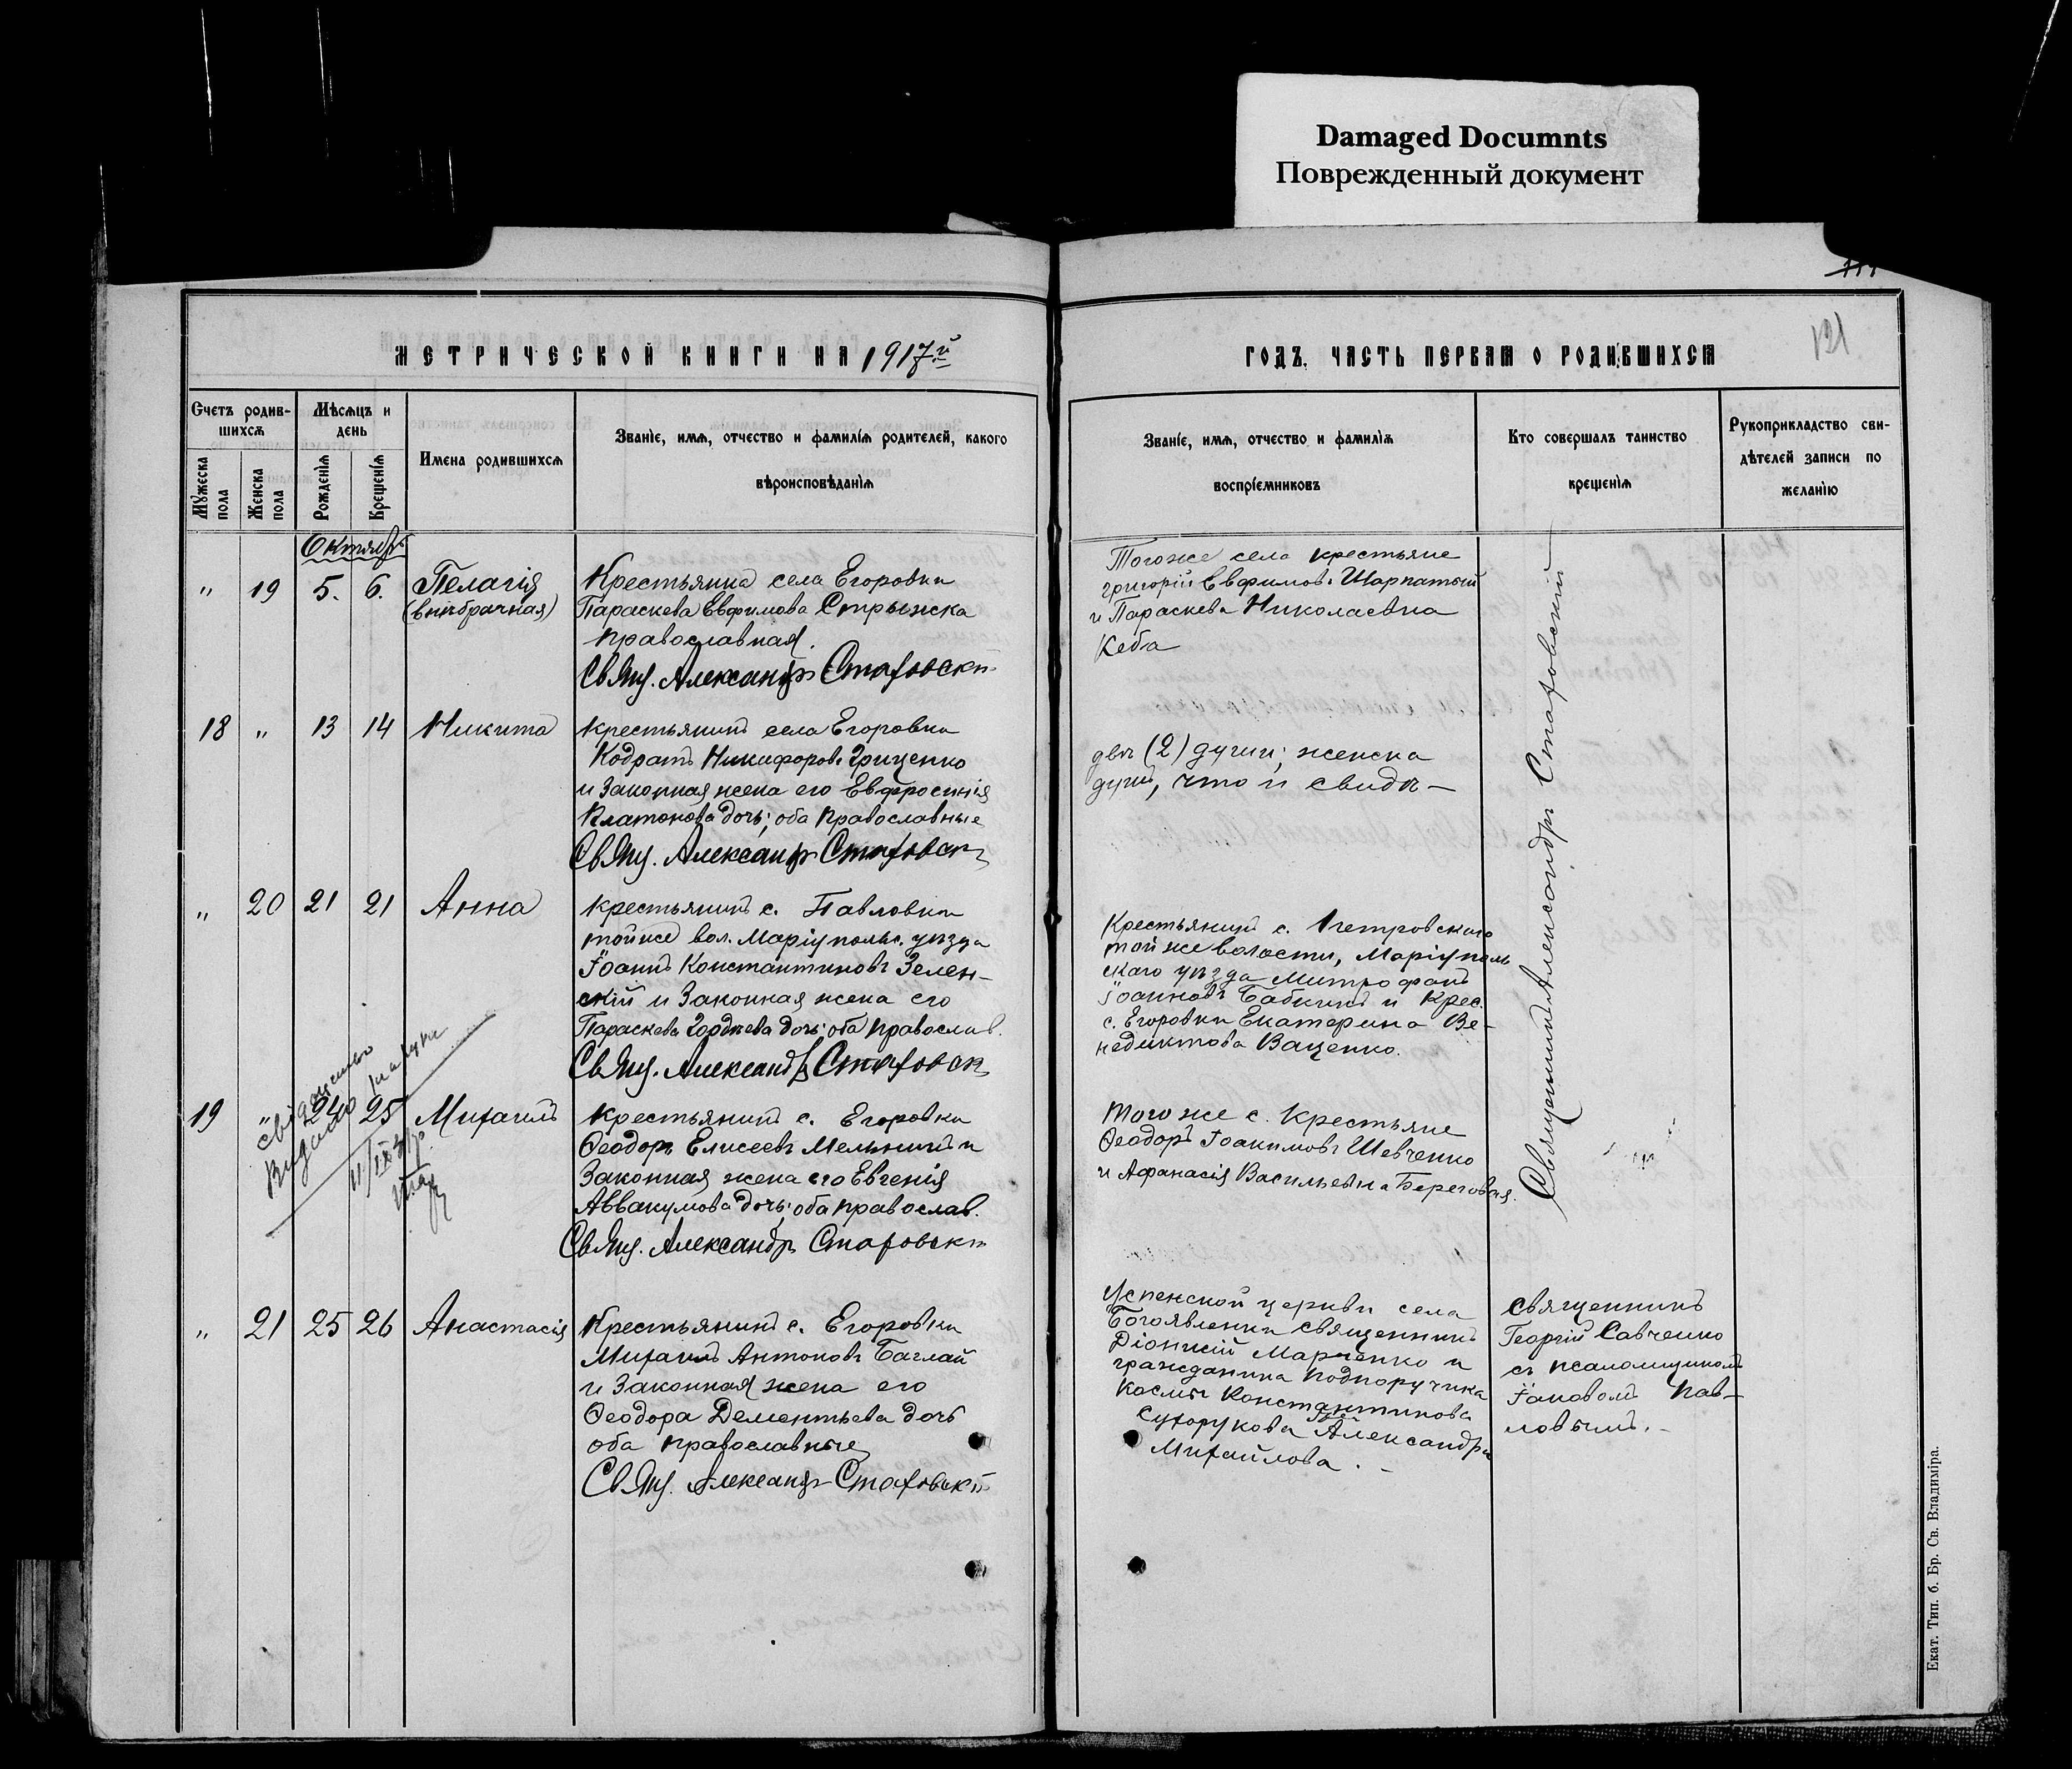 Damaged Documnts
Поврежденный документ
121
МЕТРИЧЕСКОЙ КНИГИ НА 1917й
ГОДЪ, ЧАСТЬ ПЕРВАЯ О РОДИВШИХСЯ
Счетъ родив-
шихся
Мужеска пола
Женска пола
Мѣсяцъ и
день
Рожденія
Крещенія
Имена родившихся
Званіе, имя, отчество и фамилія родителей, какого
вѣроисповѣданія
Званіе, имя, отчество и фамилія
воспріемниковъ
Кто совершалъ таинство
крещенія
Рукоприкладство сви-
дѣтелей записи по
желанію
Октябрь
" 19 5. 6. Пелагія
(внѣбрачная)
Крестьянка села Егоровки
Параскева Евфимова Стрыжка
православная.
Свящ. Александръ Стаховскій
Того же села крестьяне
Григорій Евфимовъ Шарпатый
и Параскева Николаевна
Кеба
18 " 13 14 Никита
Крестьянинъ села Егоровки
Кодратъ Никифоровъ Гриценко
и законная жена его Евфросинія
Платонова дочь; оба православные
Свящ. Александръ Стаховск
двѣ (2) души; женска
душъ, что и свидѣ-
" 20 21 21 Анна
Крестьянинъ с. Павловки
той же вол. Маріупольс. уѣзда
Іоаннъ Константиновъ Зелен-
скій и законная жена его
Параскева Гордѣева дочь; оба православ.
Свящ. Александръ Стаховск
Крестьянинъ с. Петровского
той же волости, Маріуполь
скаго уѣзда Митрофанъ
Іоанновъ Бабкинъ и Крес.
с. Егоровки Екатерина Ве-
недиктова Ваценко.
19 " 24 25 Михаилъ
Видано
11/IX
Крестьянинъ с. Егоровки
Ѳеодоръ Елисеевъ Мельникъ и
законная жена его Евгенія
Аввакумова дочь; оба православ.
Свящ. Александръ Стаховскій
Того же с. Крестьяне
Ѳеодоръ Іоакимовъ Шевченко
и Афанасія Васильевна Береговая.
Священникъ Александръ Стаховскій
" 21 25 26 Анастасія
Крестьянинъ с. Егоровки
Михаилъ Антоновъ Баглай
и законная жена его
Ѳеодора Дементьева дочь
оба православные
Свящ. Александръ Стаховскій
Успенской церкви села
Богоявленки священникъ
Діонисій Марченко и
гражданина подпоручика
Космы Константинова
Сухорукова Александра
Михайлова. -
Священникъ
Георгій Савченко
съ псаломщикомъ
Іаковомъ Пав-
ловымъ. -
Екат. Тип. б. Бр. Св. Владиміра.